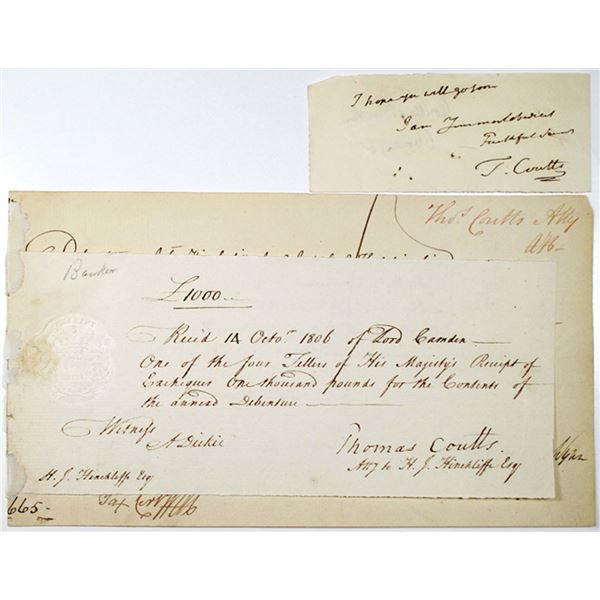 I hope you will go soon
I am Your most obedient
Faithful
T. Coutts
Thos. Coutts Atty
Banker
£1000
Recd 14 Octor 1806 of Lord Camden
One of the four Tellers of His Majesty's Receipt of
Exchequer One thousand pounds for the Contents of
the annexd Debenture
Witness
A Dickie
Thomas Coutts.
Atty to H. J. Hinchliffe Esq
H. J. Hinchliffe Esq
665
Tax